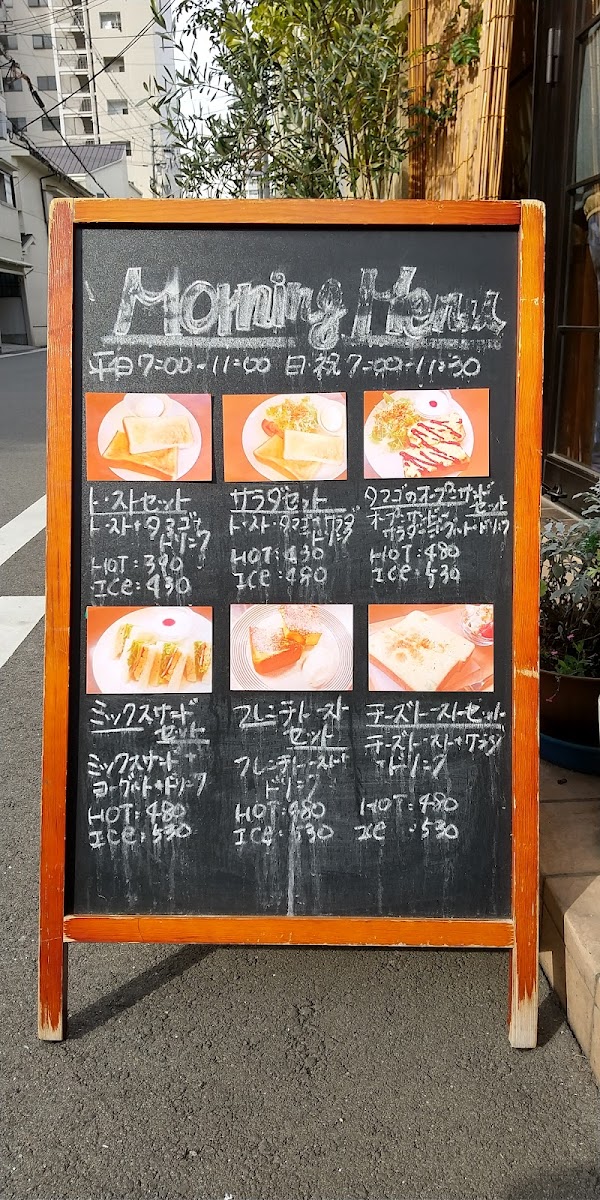 Morning Menu
平日7:00-11:00 日・祝7:00-11:30
トーストセット
トースト+タマゴ+
ドリンク
HOT:390
ICE:430
サラダセット
トースト・タマゴ+サラダ
ドリンク
HOT:430
ICE:480
タマゴのオープンサンド
セット
オープンサンド+
サラダ+ヨーグルト+ドリンク
HOT:480
ICE:530
ミックスサンド
セット
ミックスサンド+
ヨーグルト+ドリンク
HOT:480
ICE:530
フレンチトースト
セット
フレンチトースト+
ドリンク
HOT:480
ICE:530
チーズトーストセット
チーズトースト+サラダ
+ドリンク
HOT:480
ICE:530